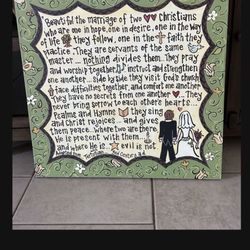 Beautiful the marriage of two christians
who are one in hope, one in desire, one in the way
of life they follow, one in the faith they
practice. They are servants of the same
master... nothing divides them. They pray
and worship together, instruct and strengthen
one another... side by side they visit God's church
face difficulties together, and comfort one another
They have no secrets from one another... They
never bring sorrow to each other's hearts...
Psalms and Hymns they sing
and Christ rejoices... and gives
them peace. Where two are there,
He is present with them...
and where He is... evil is not.